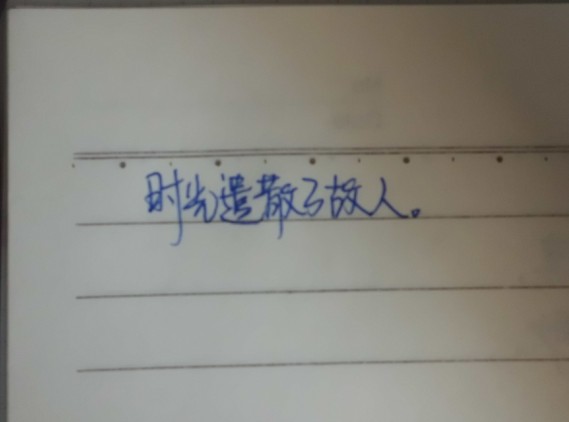 时光遣散了故人。